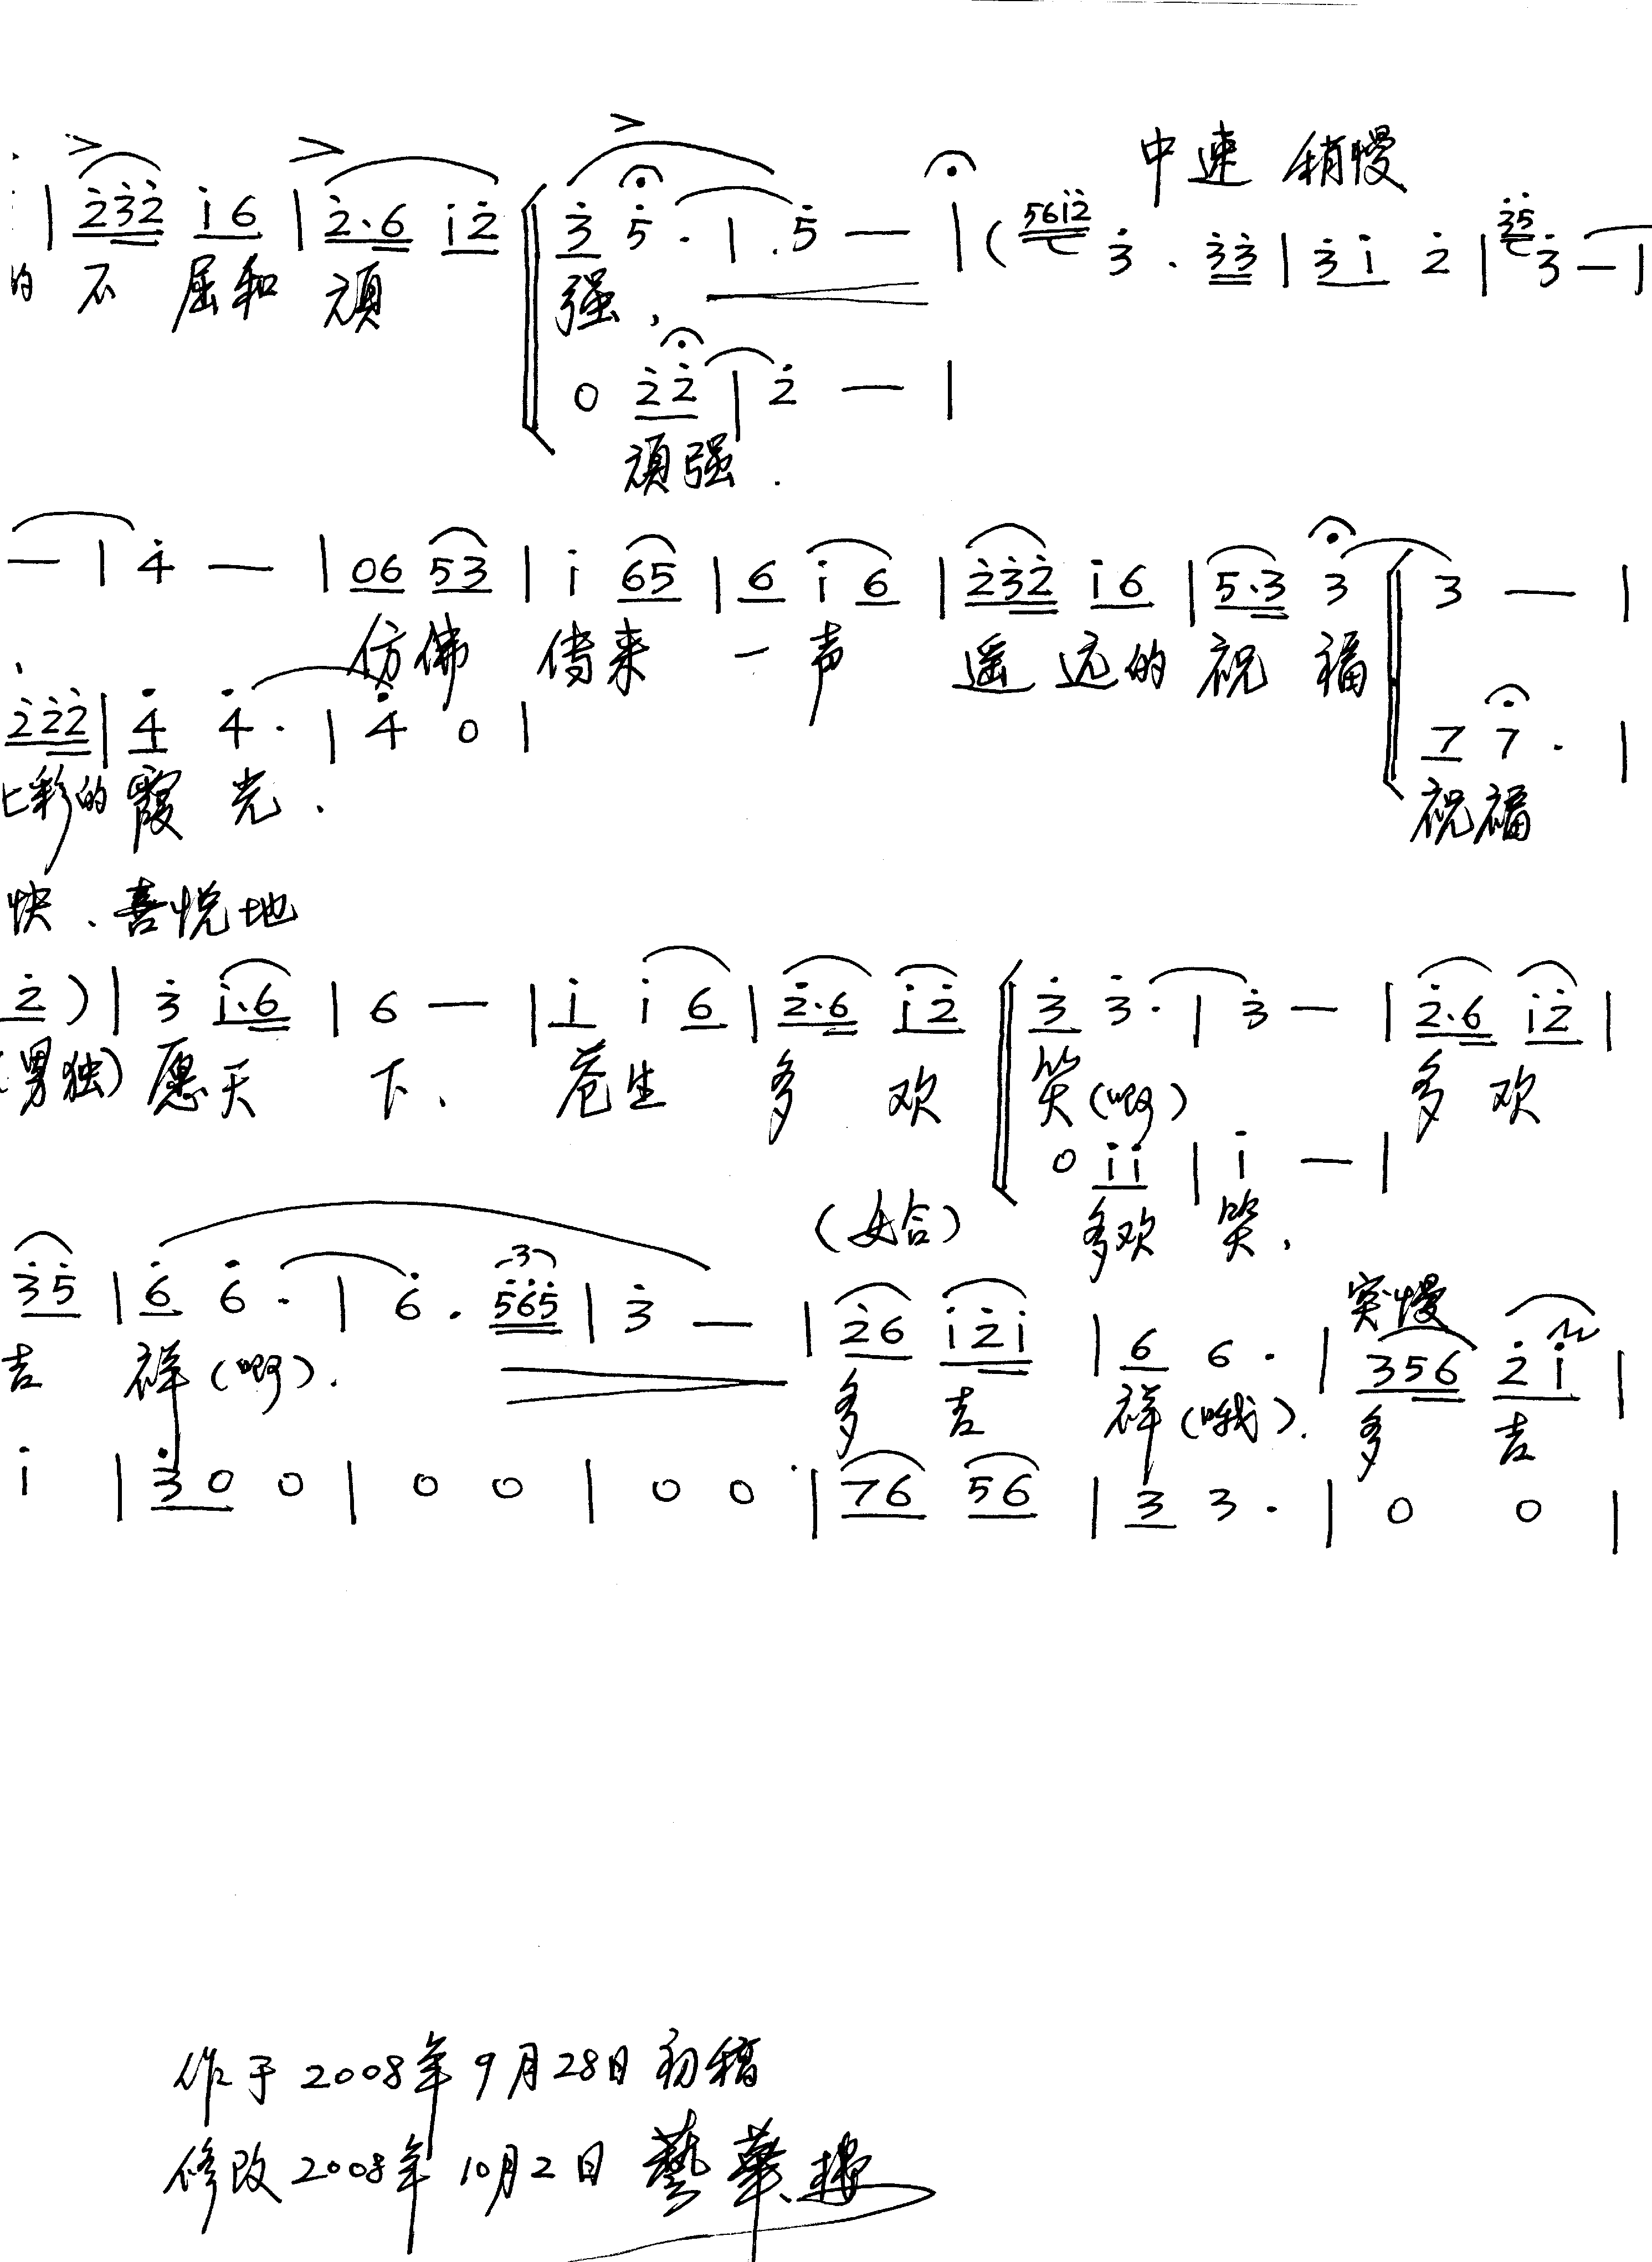 中速 稍慢
| 2̇3̇2̇ i6 | 2̇·6 i2̇ 3̇ 5̇· | 5̇ — | (5̇6̇i2̇ 3̇· 3̇3̇ | 3̇i 2̇ | 3̇5̇ 3̇ — |
的 不 屈和 頑 强,
0 2̇2̇ | 2̇ — |
頑强.
— | 4̇ — | 06 53 | i 65 | 6 i 6 | 2̇3̇2̇ i6 | 5·3 3 3 — |
仿佛 传来 一 声 遥 远的 祝 福
2̇2̇2̇ | 4̇ 4̇· | 4̇ 0 | 7 7· |
彩的 霞 光. 祝福
快、喜悦地
2̇) | 3̇ i·6 | 6 — | i i 6 | 2̇·6 i2̇ 3̇ 3̇· | 3̇ — | 2̇·6 i2̇ |
(男独) 愿天 下、 苍生 多 欢 笑(啊) 多 欢
0 ii | i — |
(女合) 多欢 笑,
突慢
3̇5̇ | 6̇ 6̇· | 6̇· 5̇6̇5̇ | 3̇ — | 2̇6 i2̇i | 6 6· | 356 2̇i |
吉 祥(啊). 多 吉 祥(哦). 多 吉
i | 3̇0 0 | 0 0 | 0 0 | 76 56 | 3 3· | 0 0 |
作于 2008年 9月28日 初稿
修改 2008年 10月2日 藝華樓